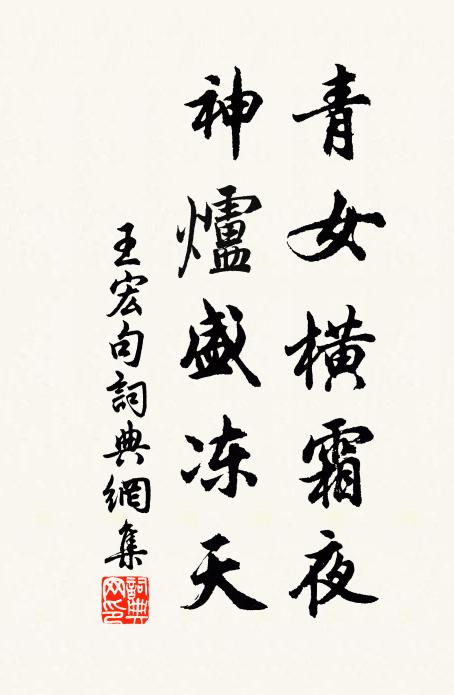 青女橫霜夜
神爐盛冻天
王宏句詞典網集
詞典网印